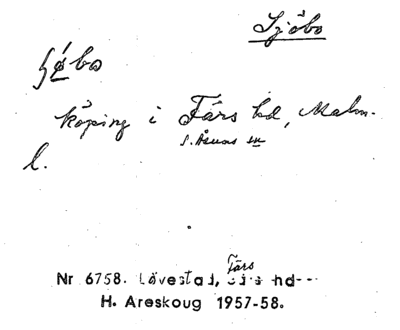 Sjöbo
köping i Färs hd, Malm.
l.
s. Åsums sn
Färs
Nr 6758. Lövestad, hd--
H. Areskoug 1957-58.